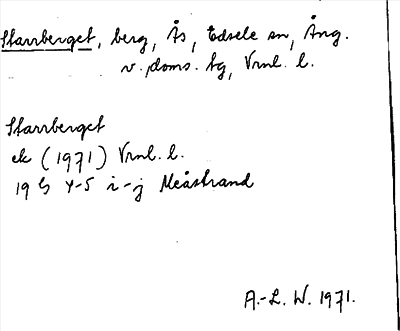 Starrberget, berg, Ås, Edsele sn, Ång.
v. doms. tg, Vrnl. l.
Starrberget
ek (1971) Vrnl. l.
19 G 4-5 i-j Meåstrand
A.-L. W. 1971.